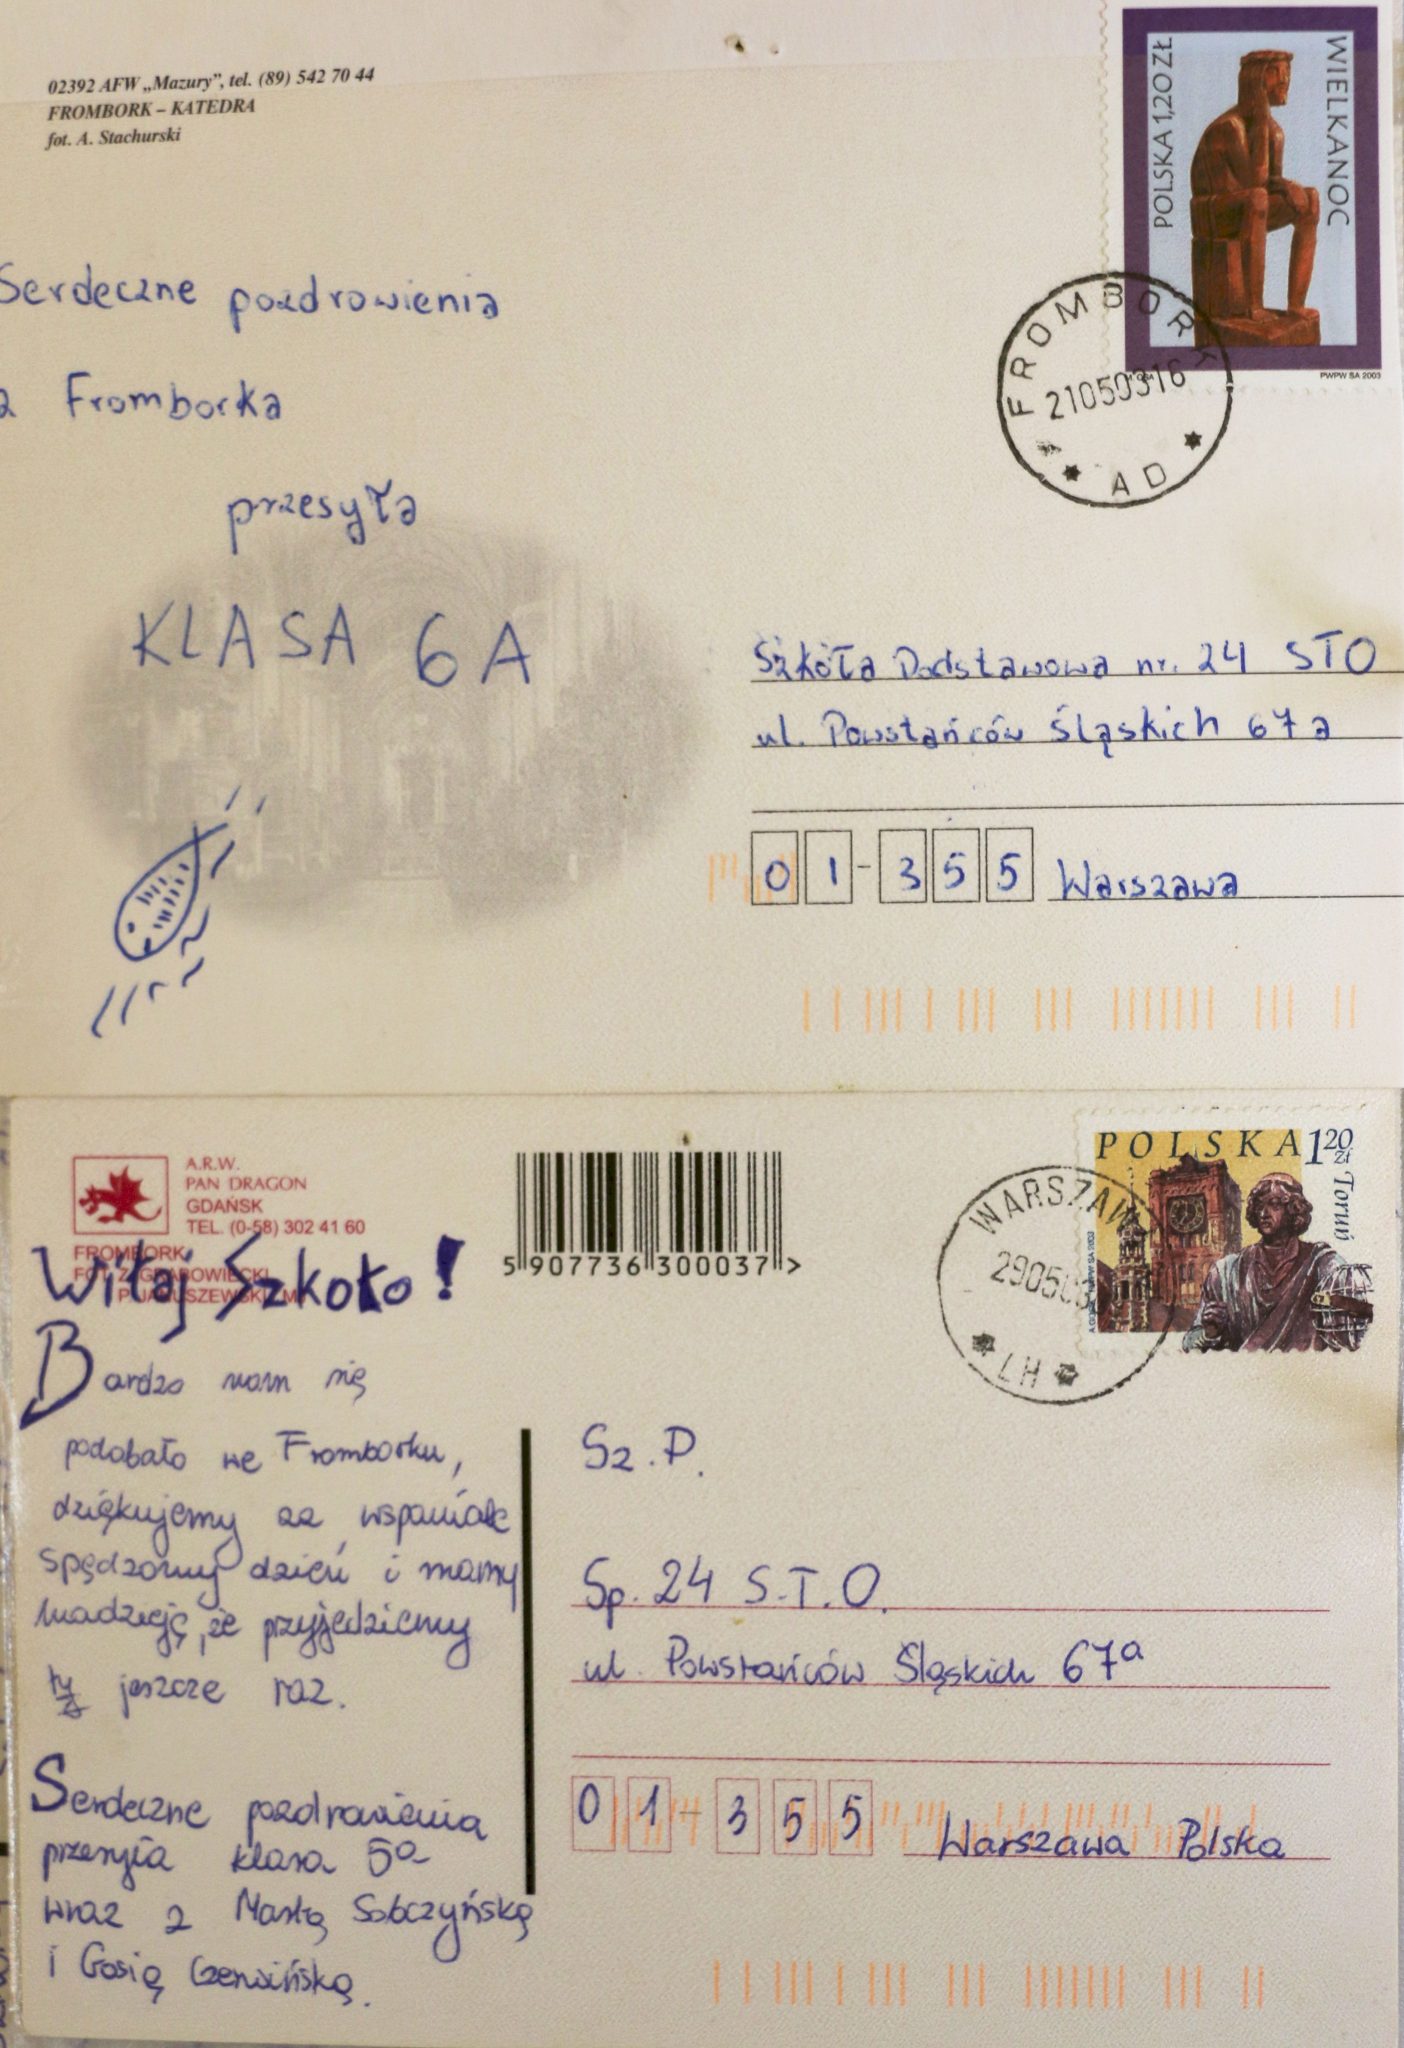 02392 AFW „Mazury”, tel. (89) 542 70 44
FROMBORK – KATEDRA
fot. A. Stachurski
POLSKA 1,20 ZŁ
WIELKANOC
PWPW SA 2003
FROMBORK
21050316
AD
Serdeczne pozdrowienia
z Fromborka
przesyła
KLASA 6A
Szkoła Podstawowa nr. 24 STO
ul. Powstańców Śląskich 67a
01-355 Warszawa
A.R.W.
PAN DRAGON
GDAŃSK
TEL. (0-58) 302 41 60
FROMBORK
FOT. Z. GRABOWIECKI
P. JANUSZEWSKI
5 907736 300037 >
POLSKA 1 20 zł
Toruń
WARSZAW
29050
LH
Witaj Szkoło!
Bardzo nam się
podobało we Fromborku,
dziękujemy za wspaniale
spędzony dzień i mamy
nadzieję, że przyjedziemy
tu jeszcze raz.
Serdeczne pozdrowienia
przesyła klasa 5a
wraz z Martą Sobczyńską
i Gosią Czerwińską.
Sz. P.
Sp. 24 S.T.O.
ul. Powstańców Śląskich 67a
01-355 Warszawa Polska